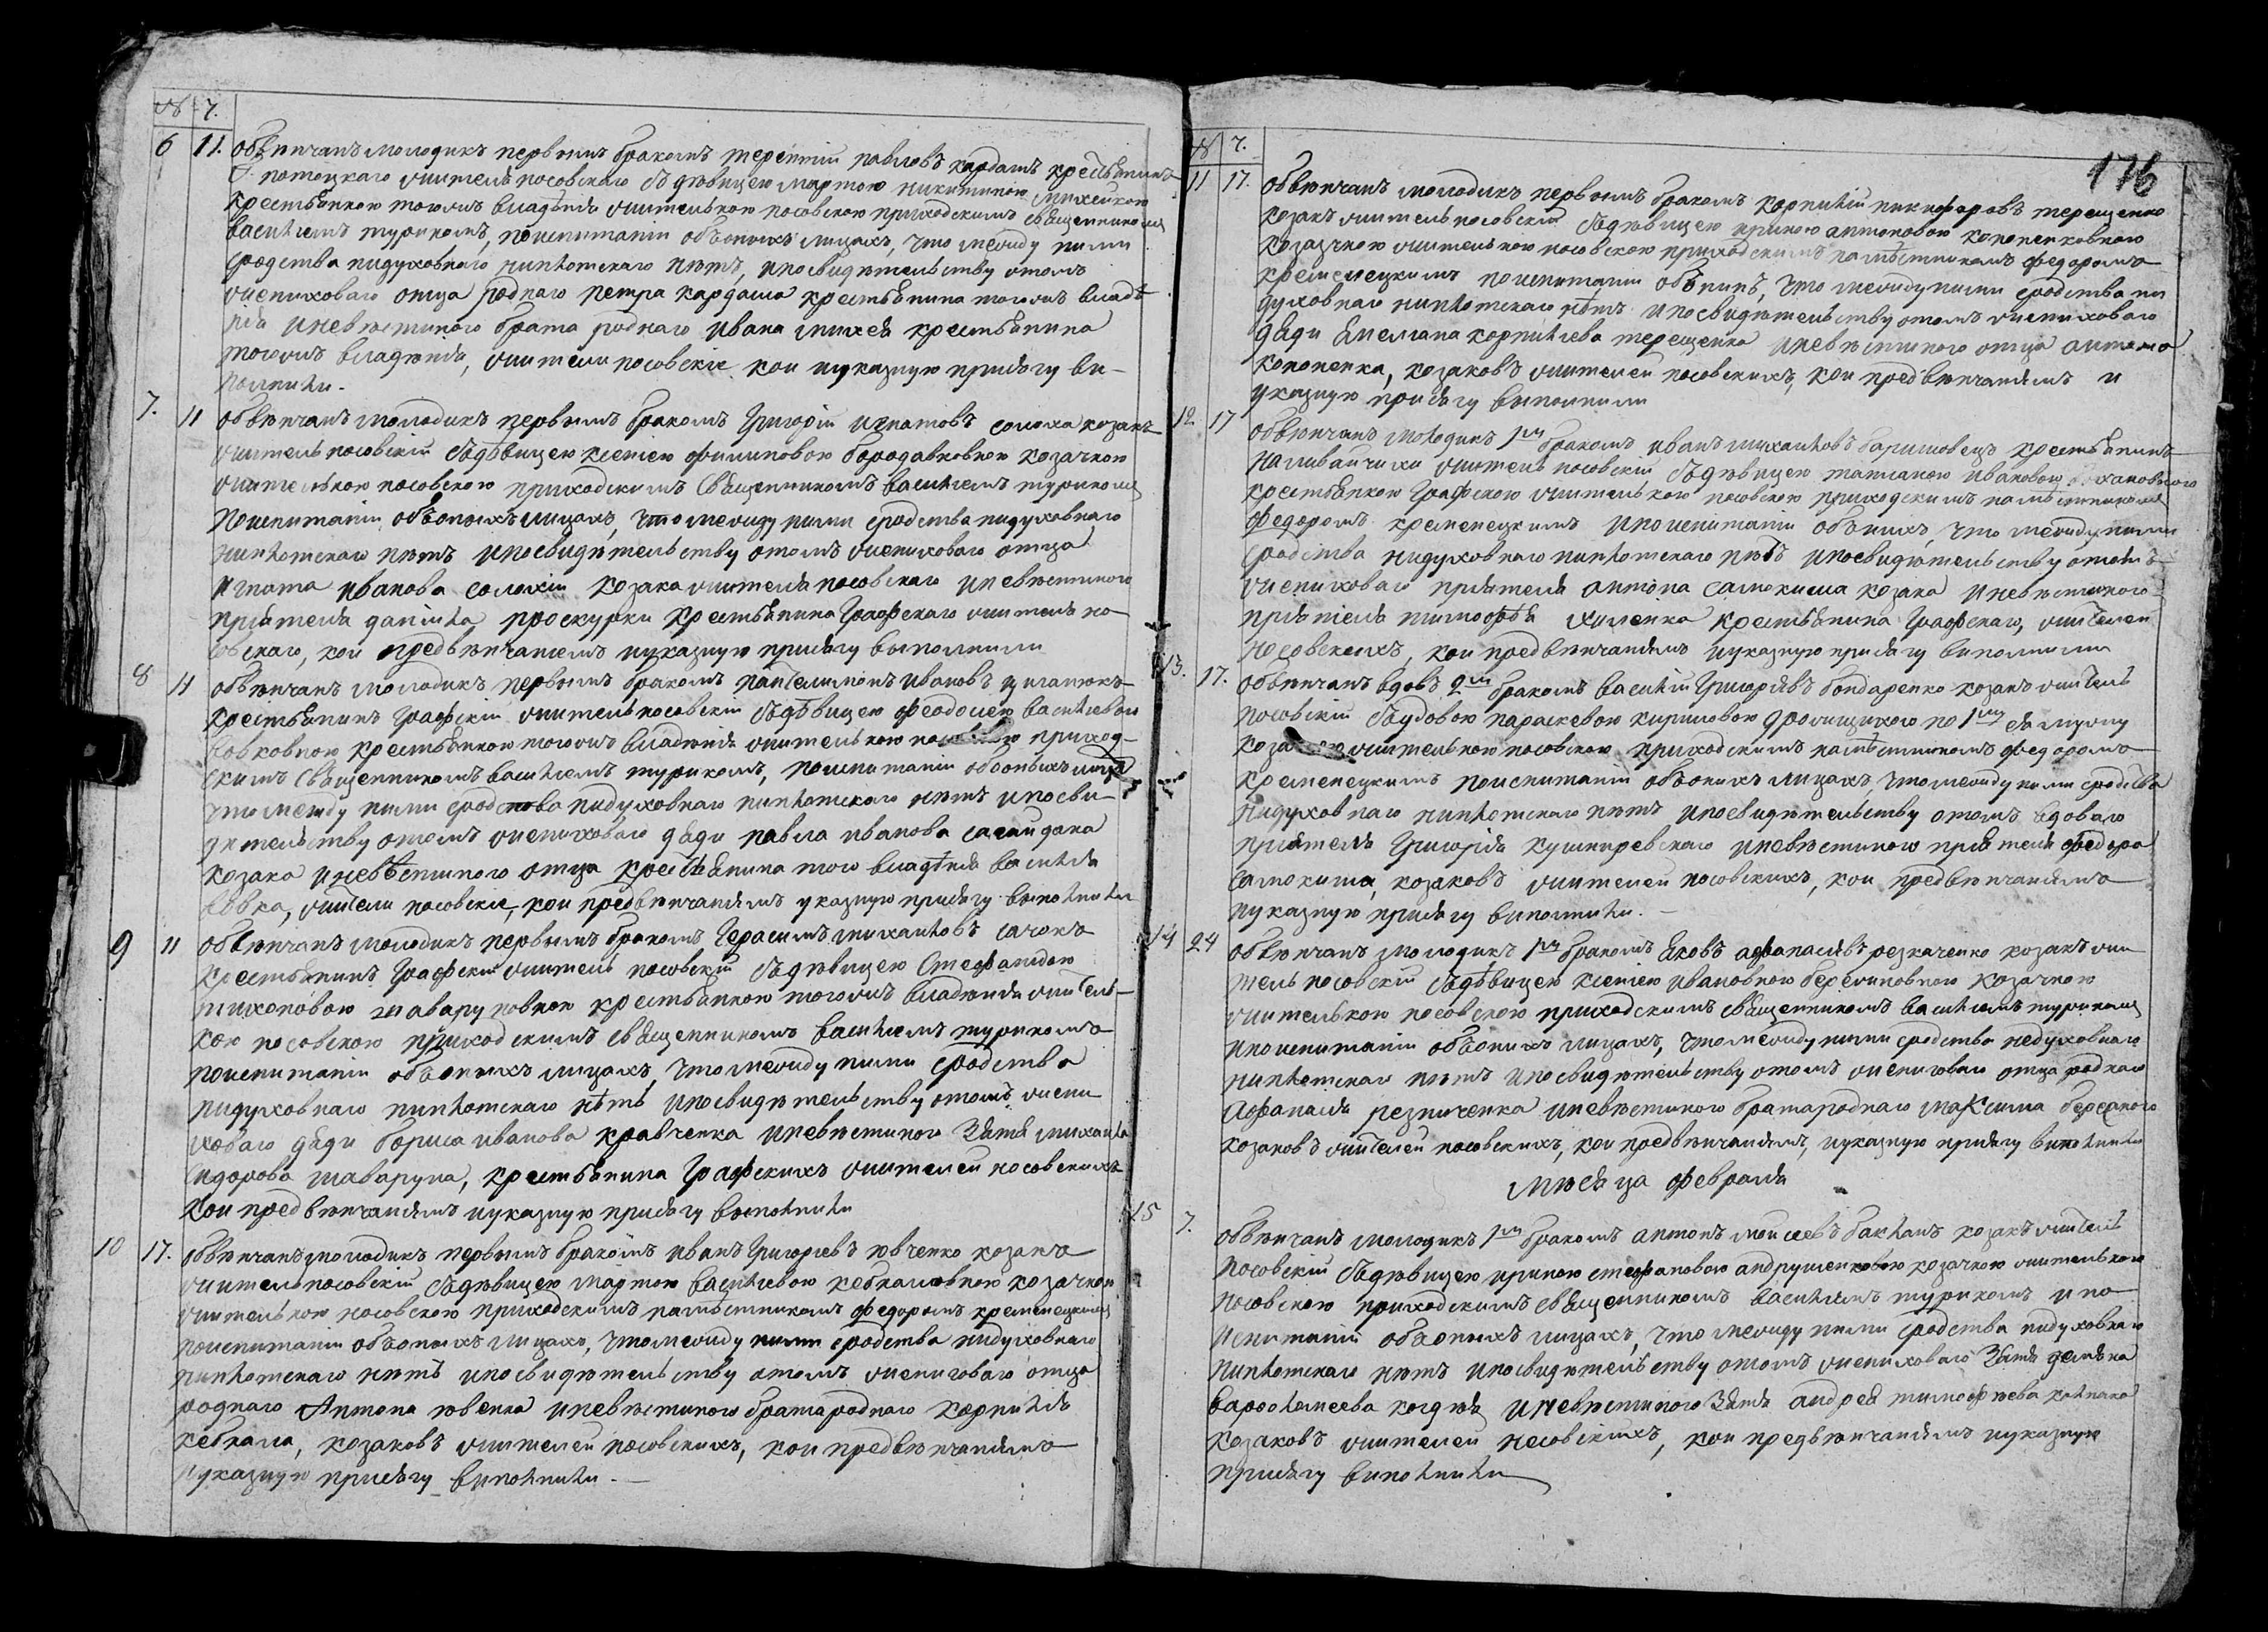 № ч.
6 11. обвѣнчанъ молодикъ первымъ бракомъ терентій павловъ кардашъ крестьянинъ
потоцкаго житель носовскаго съ дѣвицею мартою никитиною михейкою
крестьянкою тогожъ владѣнія жителькою носовскою приходскимъ священникомъ
василіемъ турикомъ, поиспитаніи обѣоныхъ лицахъ, что между ними
сродства нидуховнаго ниплотскаго нѣтъ, ипосвидѣтельству отомъ
жениховаго отца роднаго петра кардаша крестьянина тогожъ владѣ
нія иневѣстиного брата роднаго ивана михея крестьянина
тогожъ владѣнія, жители носовскіе кои иуказную присягу ви-
полнили.-
7. 11 обвѣнчанъ молодикъ первымъ бракомъ григорій игнатовъ солоха козакъ
житель носовскій сдѣвицею ксеніею филиповою бородавковною козачкою
жителькою носовскою приходскимъ священникомъ василіемъ турикомъ
поиспитаніи обѣоныхъ лицахъ, что между ними сродства нидуховнаго
ниплотскаго нѣтъ ипосвидѣтельству отомъ жениховаго отца
игната иванова солохи козака жителя носовскаго иневѣстиного
пріятеля даніила проскурки крестьянина графскаго житель но-
совскаго, кои предвѣнчаніемъ иуказную присягу выполнили
8 11 обвѣнчанъ молодикъ первымъ бракомъ пантелимонъ ивановъ циганюкъ
крестьянинъ графскій житель носовскій сдѣвицею феодосею василіевою
вовковною крестьянкою тогожъ владѣнія жителькою носовскою приход-
скимъ священникомъ василіемъ турикомъ, поиспитаніи обоныхъ лица
что между ними сродства нидуховнаго ниплотского нѣтъ ипосви-
дѣтельству отомъ жениховаго дяди павла иванова сагайдака
козака иневѣстиного отца крестьянина того владѣнія василія
вовка, жители носовскіе, кои предвѣнчаніемъ указную присягу выполнили
9 11 обвѣнчанъ молодикъ первымъ бракомъ герасимъ михаиловъ сачокъ
крестьянинъ графскій житель носовскій сдѣвицею стефанидою
тихоновою шаваруновною крестьянкою тогожъ владѣнія житель-
кою носовскою приходскимъ священникомъ василіемъ турикомъ
поиспитаніи обѣоныхъ лицахъ, что между ними сродства
нидуховнаго ниплотскаго нѣтъ ипосвидѣтельству отомъ жени
ховаго дяди бориса иванова кравченка иневѣстиного зятя михаила
сидорова шаваруна, крестьянина графскихъ жителей носовскихъ
кои предвѣнчаніемъ иуказную присягу выполнили
10 17. обвѣнчанъ молодикъ первымъ бракомъ иванъ григорьевъ ювченко козакъ
житель носовскій сдѣвицею мартою василіевою кебкаловною козачкою
жителькою носовскою приходскимъ намѣстникомъ федоромъ кременецкимъ
поиспитаніи обѣоныхъ лицахъ, что между ними сродства нидуховнаго
ниплотскаго нѣтъ ипосвидѣтельству отомъ жениховаго отца
роднаго Антона ювенка иневѣстиного брата роднаго корнилія
кебкала, козаковъ жителей носовскихъ, кои предвѣнчаніемъ
иуказную присягу виполнили.-
176
№ ч.
11 17. обвѣнчанъ молодикъ первымъ бракомъ корнилій никифоровъ терещенко
козакъ житель носовскій сдѣвицею ириною антоновою кононенковною
козачкою жителькою носовскою приходскимъ намѣстникомъ федоромъ
кременецкимъ поиспитаніи обѣнихъ, что между ними сродства ни
духовнаго ниплотскаго нѣтъ ипосвидѣтельству отомъ жениховаго
дяди Емелиана корнилиева терещенка иневѣстиного отца антона
кононенка, козаковъ жителей носовскихъ, кои предвѣнчаніемъ и
указную присягу выполнили
12 17 обвѣнчанъ молодикъ 1мъ бракомъ иванъ михаиловъ баришовецъ крестьянинъ
наливайчихи житель носовскій сдѣвицею татіаною ивановою
крестьянкою графскою жителькою носовскою приходскимъ намѣстникомъ
федоромъ кременецкимъ ипоиспитаніи обѣнихъ, что между ними
сродства нидуховнаго ниплотскаго нѣтъ ипосвидѣтельству отомъ
жениховаго пріятеля антона самокиша козака иневѣстиного
пріятеля тимофѣя хименка крестьянина графскаго, жителей
носовскихъ, кои предвѣнчаніемъ иуказную присягу виполнили
13. 17. обвѣнчанъ вдовъ 2мъ бракомъ василій григоріевъ бондаренко козакъ житель
носовскій сдовою параскевою кириловою дроницихою по 1мъ ея мужу
козачкою жителькою носовскою приходскимъ намѣстникомъ федоромъ
кременецкимъ поиспитаніи обѣонихъ лицахъ, что между ними сродства
нидуховнаго ниплотскаго нѣтъ ипосвидѣтельству отомъ вдоваго
пріятеля григорія кушниревскаго иневѣстиного пріятеля федора
самокиша, козаковъ жителей носовскихъ, кои предвѣнчаніемъ
иуказную присягу виполнили.-
14 24 обвѣнчанъ молодикъ 1мъ бракомъ яковъ афанасіевъ резниченко козакъ жи
тель носовскій сдѣвицею ксеніею ивановною березиковною козачкою
жителькою носовскою приходскимъ священникомъ василіемъ турикомъ
ипоиспитаніи обѣонихъ лицахъ, что между ними сродства недуховнаго
ниплотскаго нѣтъ ипосвидѣтельству отомъ жениховаго отца роднаго
Афанасія резниченка иневѣстиного брата роднаго максима
козаковъ жителей носовскихъ, кои предвѣнчаніемъ, иуказную присягу виполнили
мѣсяца февраля
15 7. обвѣнчанъ молодикъ 1мъ бракомъ антонъ моисеевъ баклан козакъ житель
носовскій сдѣвицею ириною стефановою андрушенковою козачкою жителькою
носовскою приходскимъ священникомъ василіемъ турикомъ ипо
испитаніи обѣоныхъ лицахъ, что между ними сродства нидуховнаго
ниплотскаго нѣтъ ипосвидѣтельству отомъ жениховаго зятя демяна
варфоломеева иневѣстиного зятя андрея тимофѣева
козаковъ жителей носовскихъ, кои предвѣнчаніемъ иуказную
присягу виполнили